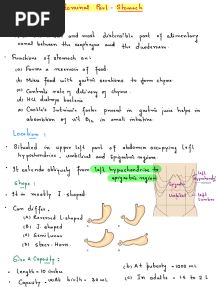 PDF
Abdominal Part - Stomach
and most distensible part of alimentary
canal between the esophagus and the duodenum.
• Functions of stomach are:
(a) Forms a reservoir of food.
(b) Mixes food with gastric secretions to form chyme.
(c) Controls rate of delivery of chyme.
(d) HCl destroys bacteria
(e) Castle's Intrinsic factor present in gastric juice helps in
absorption of vit B12 in small intestine.
Location:
• Situated in upper left part of abdomen occupying left
hypochondriac, umbilical and Epigastric region.
• It extends obliquely from left hypochondriac to
epigastric region
Shape:
• It is mostly J shaped
• Can differ:
(a) Reversed L-shaped
(b) J. shaped
(c)
(d) Steer-Horn.
Epigastric
Umbilical
left
Hypochondriac
left
Size & Capacity:
• Length = 10 inches
• Capacity: (a) At birth = 30 ml
(b) At puberty = 1000 ml
(c) In adults = 1.5 to 2 L